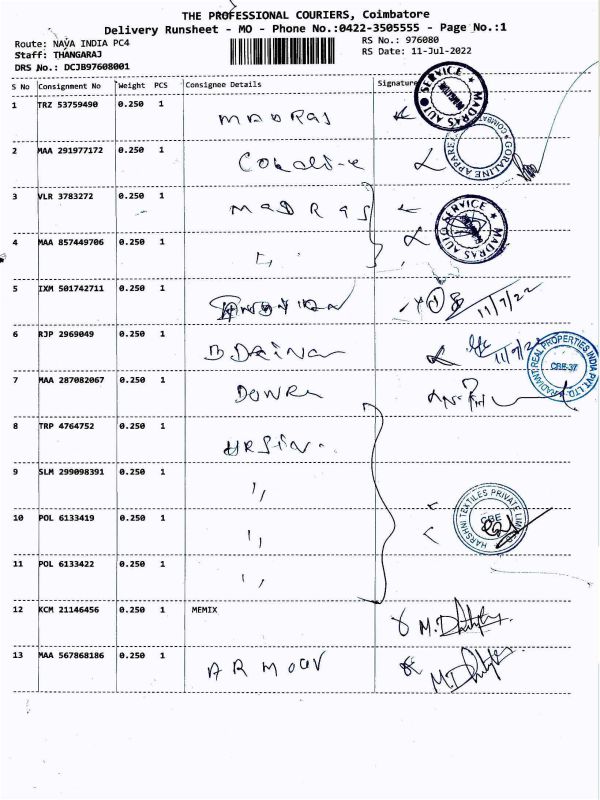 THE PROFESSIONAL COURIERS, Coimbatore
Delivery Runsheet - MO - Phone No.:0422-3505555 - Page No.:1
Route: NAVA INDIA PC4 RS No.: 976080
Staff: THANGARAJ RS Date: 11-Jul-2022
DRS No.: DCJB97608001
S No Consignment No Weight PCS Consignee Details Signature
MADRAS AUTO SERVICE
1 TRZ 53759490 0.250 1 MADRAS
2 MAA 291977172 0.250 1
3 VLR 3783272 0.250 1 MADRAS
MADRAS AUTO SERVICE
4 MAA 857449706 0.250 1
5 IXM 501742711 0.250 1 11/7/22
6 RJP 2969049 0.250 1
RADIANT REAL PROPERTIES INDIA PVT. LTD.
CBE-37
7 MAA 287082067 0.250 1
8 TRP 4764752 0.250 1
9 SLM 299098391 0.250 1 "
HARSHNI TEXTILES PRIVATE LIMITED
CBE
10 POL 6133419 0.250 1 "
11 POL 6133422 0.250 1 "
12 KCM 21146456 0.250 1 MEMIX
13 MAA 567868186 0.250 1 ARMOUR